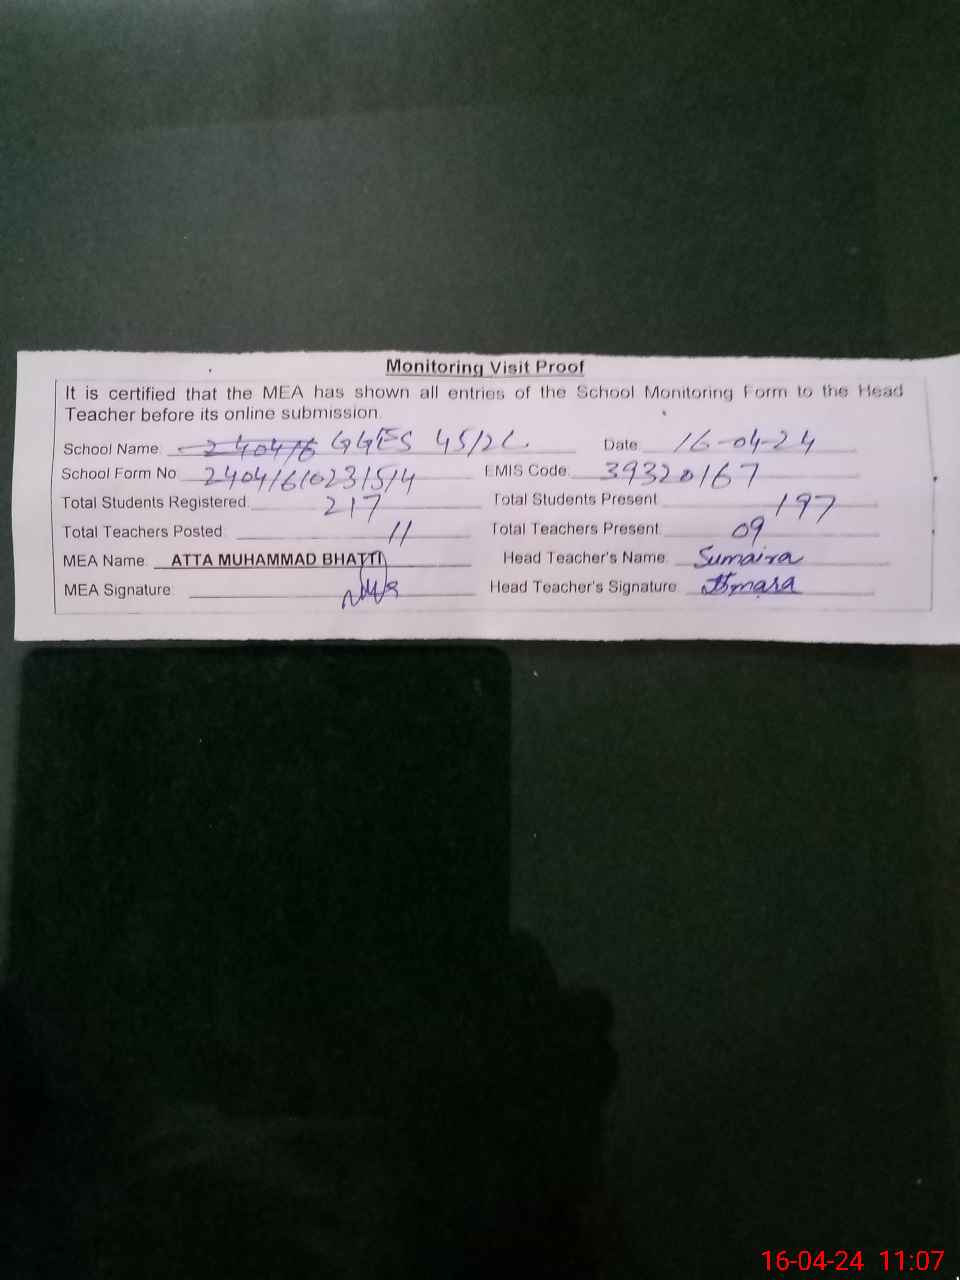 Monitoring Visit Proof
It is certified that the MEA has shown all entries of the School Monitoring Form to the Head
Teacher before its online submission.
School Name: 240416 GGES 45/2L. Date: 16-04-24
School Form No 24041610231514 EMIS Code: 39320167
Total Students Registered: 217 Total Students Present 197
Total Teachers Posted: 11 Total Teachers Present: 09
MEA Name: ATTA MUHAMMAD BHATTI Head Teacher's Name: Sumaira
MEA Signature: Head Teacher's Signature
16-04-24 11:07